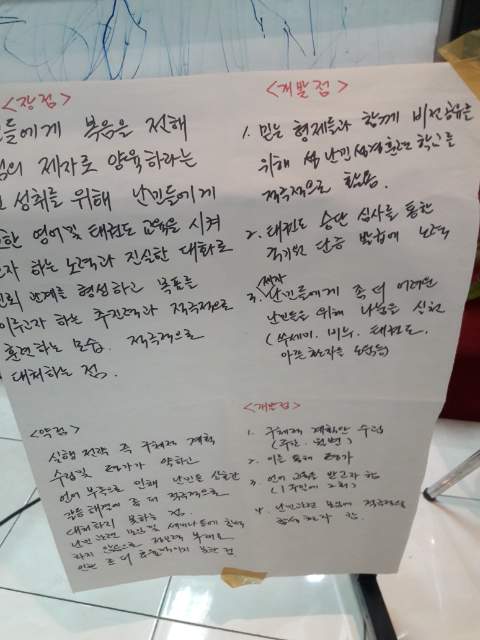 <장점>
들에게 복음을 전해
의 제자로 양육하라는
성취를 위해 난민들에게
영어 및 태권도 교육을 시켜
하는 노력과 진실한 대화로
관계를 형성하고 목표를
이루고자 하는 추진력과 적극적으로
훈련하는 모습. 적극적으로
대처하는 점.
<개발점>
1. 믿는 형제들과 함께 비전공유를
위해 난민성경훈련학교를
적극적으로 활용.
2. 태권도 승단 심사를 통한
국기원 단증 발급에 노력
3. 난민들에게 좀 더 어려운
난민들을 위해 나눔을 실천
(쑥세미, 비누, 태권도,
아픈 환자를
<약점>
실행 전략 즉 구체적 계획
수립 및 평가가 약하고
언어 부족으로 인해 난민들
갈등 해결에 좀 더 적극적으로
대처하지 못하는 점.
난민 관련 및 세미나 등에
하지 않으므로
좀 더
<개발점>
1. 구체적 계획안 수립
(주간, 월별)
2. 이를 통해 평가
3. 언어 교육을 받고자 함
(1주일에 2회)
4. 난민 관련 적극적으로
하고자 함.